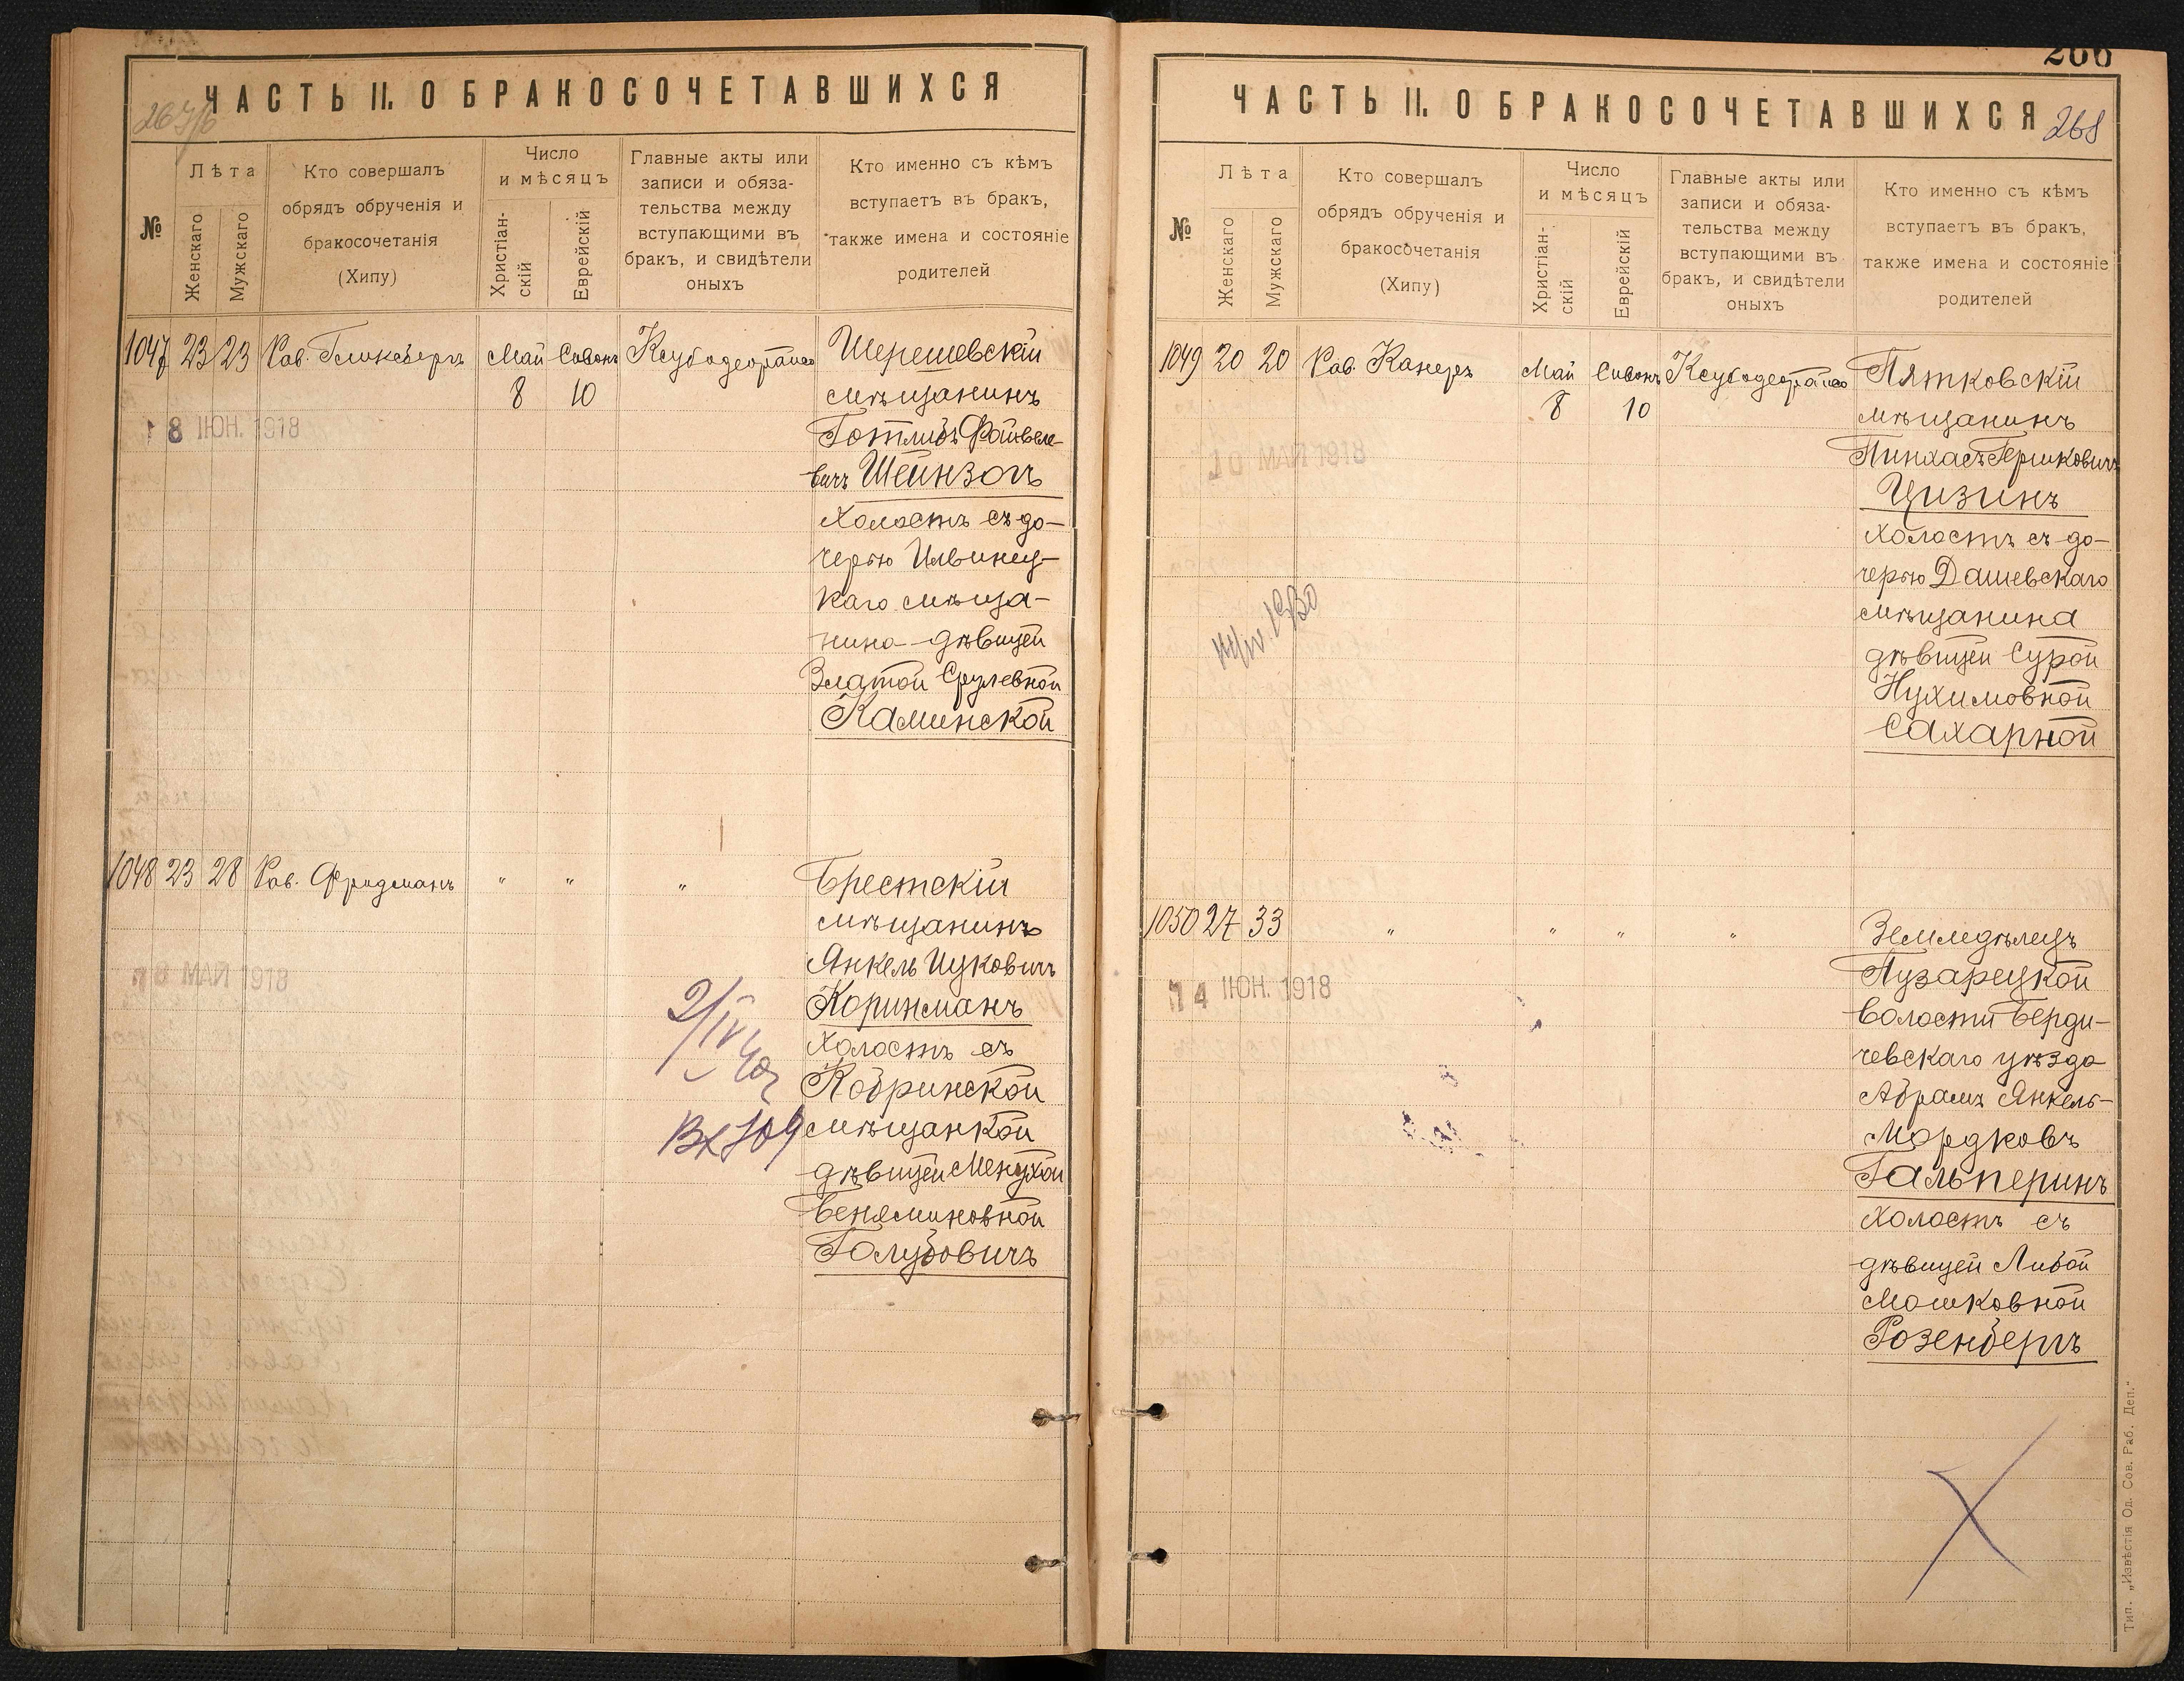 ЧАСТЬ II. О БРАКОСОЧЕТАВШИХСЯ
№
Лѣта
Женскаго
Мужскаго
Кто совершалъ
обрядъ обрученія и
бракосочетанія
(Хипу)
Число
и мѣсяцъ
Христіан-
скій
Еврейскій
Главные акты или
записи и обяза-
тельства между
вступающими въ
бракъ, и свидѣтели
оныхъ
Кто именно съ кѣмъ
вступаетъ въ бракъ,
также имена и состояніе
родителей
1047 23 23 Рав. Гликсбергъ Май Сиванъ
8 10
18 ІЮН. 1918
Шерешевскій
мѣщанинъ
Готлибъ Файвеле-
вичъ Шейнзонъ
холостъ съ до-
черью Ильинец-
каго мѣща-
нина дѣвицей
Златой Срулевной
Каминской
1048 23 28 Рав. Фридманъ " " "
МАЙ 1918
Брестскій
мѣщанинъ
Янкель Ицковичъ
Коринманъ
холостъ съ
Кобринской
мѣщанкой
дѣвицей Менухой
Беняминовной
Голубовичъ
ЧАСТЬ II. О БРАКОСОЧЕТАВШИХСЯ
268
№
Лѣта
Женскаго
Мужскаго
Кто совершалъ
обрядъ обрученія и
бракосочетанія
(Хипу)
Число
и мѣсяцъ
Христіан-
скій
Еврейскій
Главные акты или
записи и обяза-
тельства между
вступающими въ
бракъ, и свидѣтели
оныхъ
Кто именно съ кѣмъ
вступаетъ въ бракъ,
также имена и состояніе
родителей
1049 20 20 Рав. Канеръ Май Сиванъ
8 10
10 МАЙ 1918
Пятковскій
мѣщанинъ
Пинхасъ Гершковичъ
Цизинъ
холостъ съ до-
черью Дашевскаго
мѣщанина
дѣвицей Сурой
Нухимовной
Сахарной
1050 27 33 " " " "
14 ІЮН. 1918
Земледѣлецъ
Пузарецкой
волости Берди-
чевскаго уѣзда
Абрамъ Янкель-
Мордковъ
Гальперинъ
холостъ съ
дѣвицей Либой
Мошковной
Розенбергъ
Тип. „Извѣстія Од. Сов. Раб. Деп."